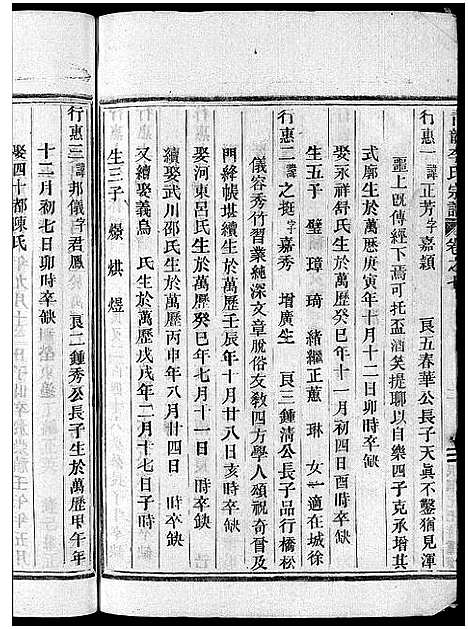 龍李氏宗譜 卷之七
行惠一 諱正芳字嘉顯 良五春華公長子天眞不鑿猶見渾
噩上旣傳經下焉可托盃酒笑提聊以自樂四子克承增其
式廓生於萬歷庚寅年十月十二日卯時卒缺
娶永祥舒氏生於萬歷癸巳年十一月初四日酉時卒缺
生五子 璧 璋 琦 緒繼正蕙 琳 女一適在城徐
行惠二 諱之挺字嘉秀 增廣生 良三鍾清公長子品行橋松
儀容秀竹習業純深文章脫俗友敎四方學人頌祝奇晉及
門絳帳堪續生於萬歷壬辰年十月廿八日亥時卒缺
娶河東呂氏生於萬歷癸巳年七月十一日 時卒缺
續娶武川邵氏生於萬歷丙申年八月廿四日 時卒缺
又續娶義烏 氏生於萬歷戊戌年二月十七日子時
生三子 爆 烘 煜
行惠三 諱邦儀字君鳳 良二鍾秀公長子生於萬歷甲午年
十二月初七日卯時卒缺
娶四十都陳氏